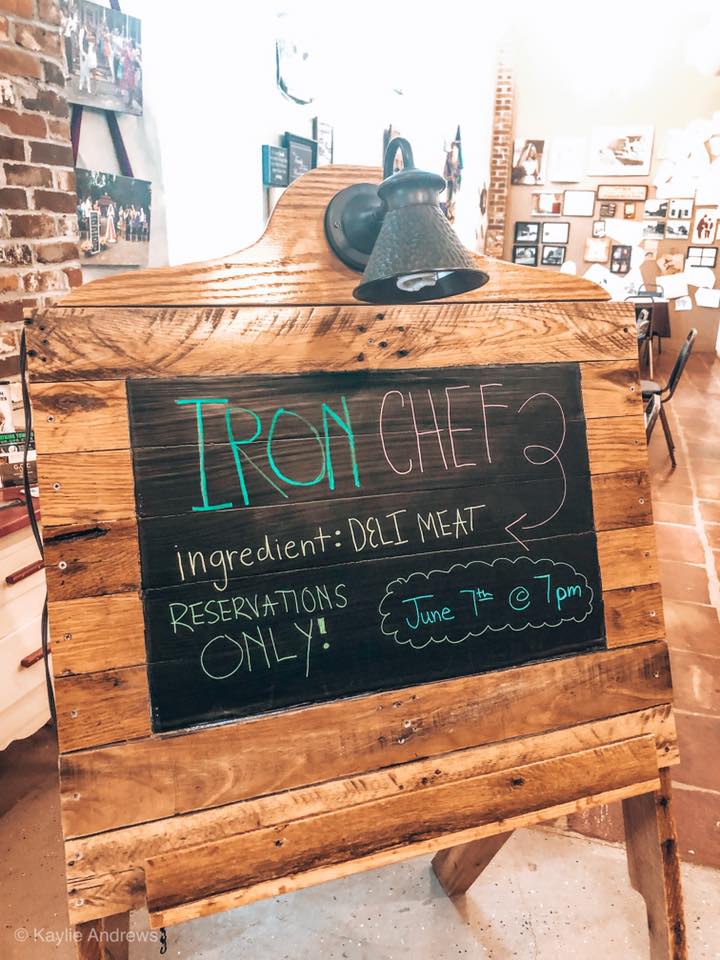 IRON CHEF
ingredient: DELI MEAT
RESERVATIONS
ONLY!
June 7th @ 7pm
© Kaylie Andrews